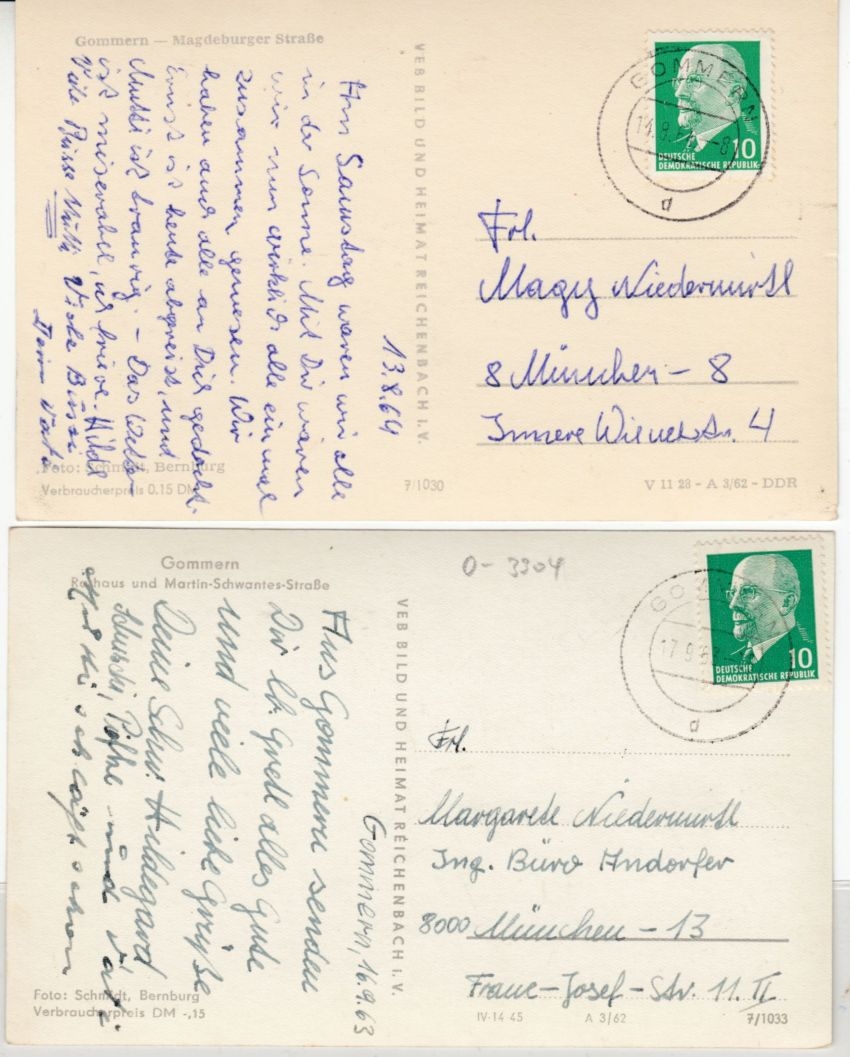 Gommern — Magdeburger Straße
13.8.64
Am Samstag waren wir alle
in der Sonne. Mit Dir wären
wir nun wirklich alle einmal
zusammen gewesen. Wir
haben auch alle an Dich gedacht.
Ernst ist heute abgereist, und
Mutti ist traurig. – Das Wetter
ist miserabel, ich friere. Hilde
Viele Grüsse Mutti Viele Bussi
Dein Vati
Foto: Schmidt, Bernburg
Verbraucherpreis 0.15 DM
VEB BILD UND HEIMAT REICHENBACH I. V.
7/1030
GOMMERN
14.8.64 -8
d
10
DEUTSCHE
DEMOKRATISCHE REPUBLIK
Frl.
Magy Niedermirtl
8 München – 8
Innere Wienerstr. 4
V 11 28 - A 3/62 - DDR
Gommern
Rathaus und Martin-Schwantes-Straße
Gommern, 16.9.63
Aus Gommern senden
Dir lb. Gretl alles Gute
und viele liebe Grüße
Deine Schw. Hildegard
und Vati.
schläft schon
Foto: Schmidt, Bernburg
Verbraucherpreis DM -,15
VEB BILD UND HEIMAT REICHENBACH I. V.
O - 3304
17.9.63
d
10
DEUTSCHE
DEMOKRATISCHE REPUBLIK
Frl.
Margarete Niedermirtl
Ing. Büro Andorfer
8000 München – 13
Franc-Josef-Str. 11. II
IV-14-45
A 3/62
7/1033